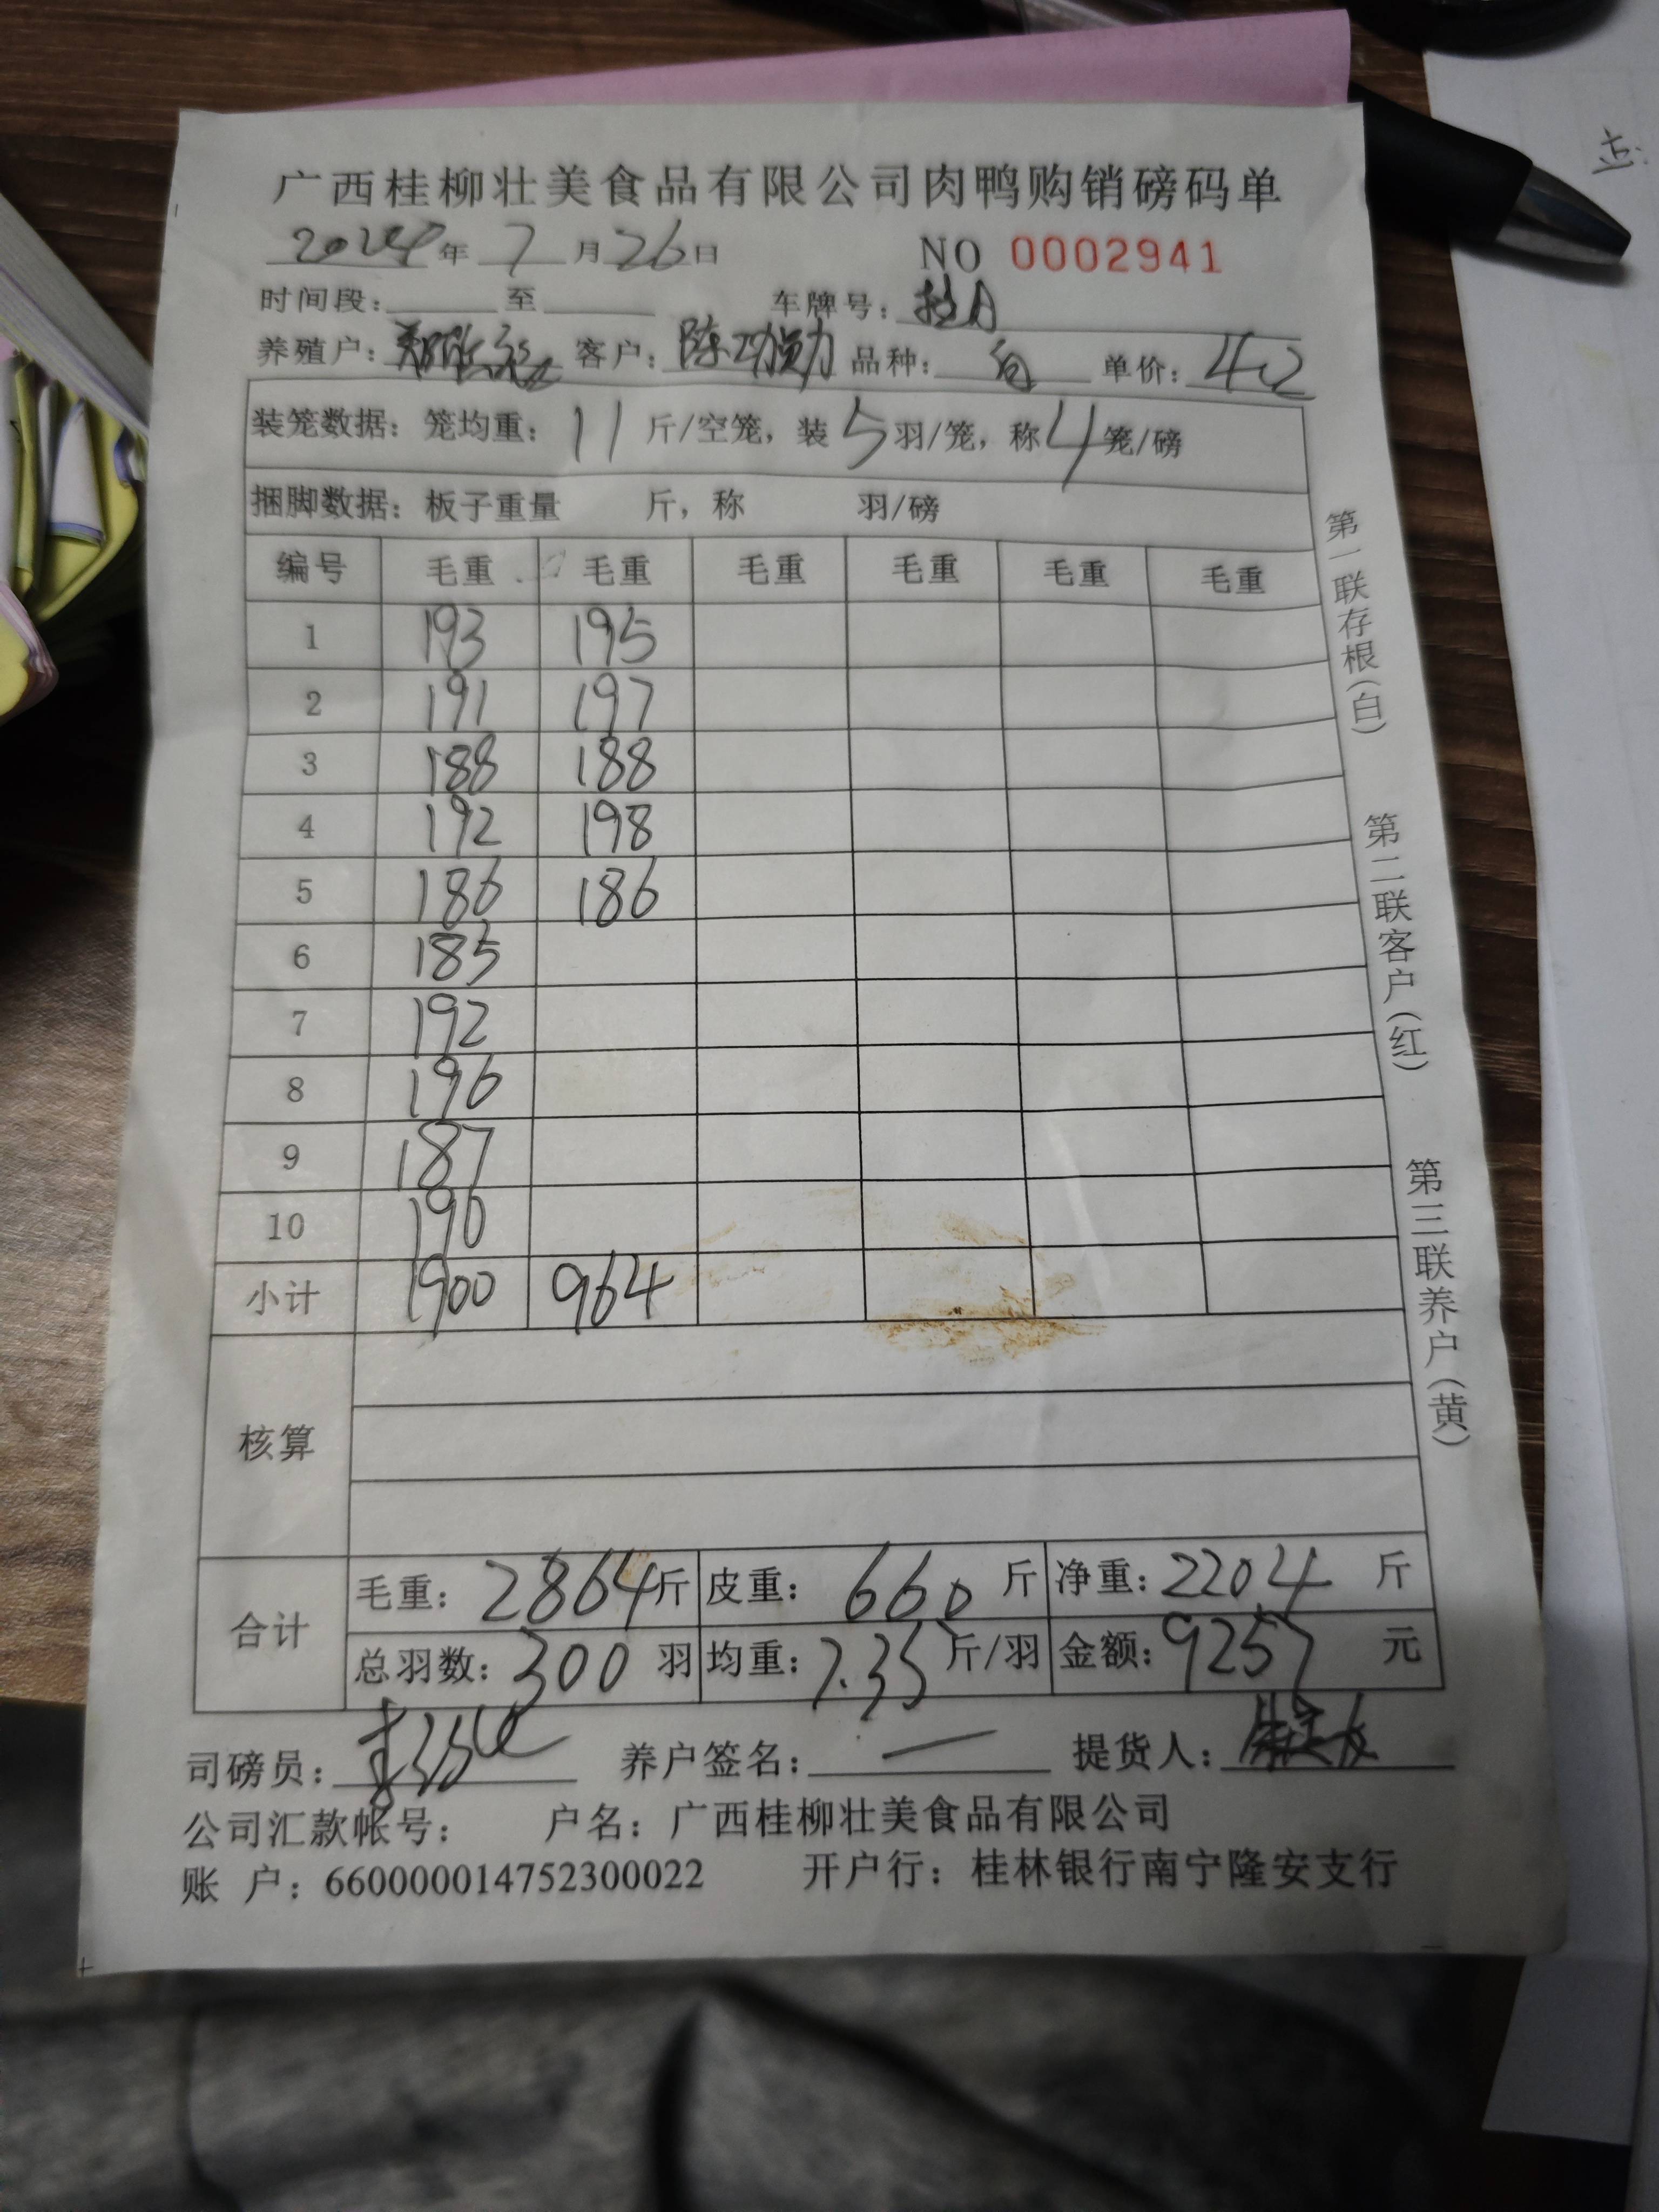 广西桂柳壮美食品有限公司肉鸭购销磅码单
2024年 7月26日 NO 0002941
时间段: 至 车牌号:
养殖户: 客户: 陈功勋 品种: 单价: 4.2
装笼数据: 笼均重: 11 斤/空笼, 装 5 羽/笼, 称 4 笼/磅
捆脚数据: 板子重量 斤, 称 羽/磅
编号 毛重 毛重 毛重 毛重 毛重 毛重
1 193 195
2 191 197
3 188 188
4 192 198
5 186 186
6 185
7 192
8 196
9 187
10 190
小计 1900 964
核算
合计 毛重: 2864斤 皮重: 660 斤 净重: 2204 斤
总羽数: 300 羽 均重: 7.35 斤/羽 金额: 9257 元
司磅员: 养户签名: 一 提货人:
公司汇款帐号: 户名: 广西桂柳壮美食品有限公司
账 户: 660000014752300022 开户行: 桂林银行南宁隆安支行
第一联存根(白)
第二联客户(红)
第三联养户(黄)